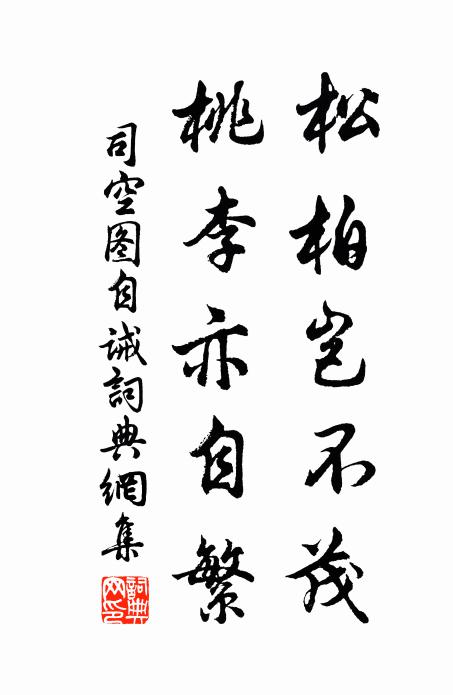 松柏岂不茂
桃李亦自繁
司空图自诫詞典網集
詞典
网印